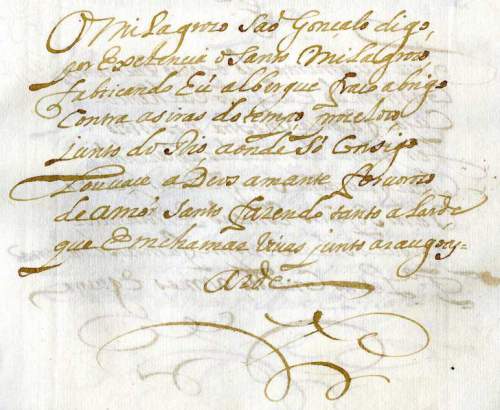 O Milagrozo Saõ Gonçalo digo,
por Exelencia o Santo Milagrozo,
fabricando Eú albergue fraco abrigo
Contra as iras do tempo,
junto do Rio aonde Só Consigo
Louvava a Deos amante fervorozo
de amor Santo fazendo tanto alarde
que Em chamas vivas junto as augoas
arde.